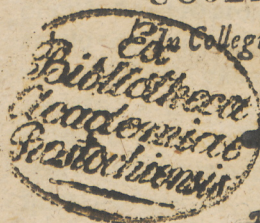 In Collegi
Ex
Bibliotheca
Academiae
Rostochiensis